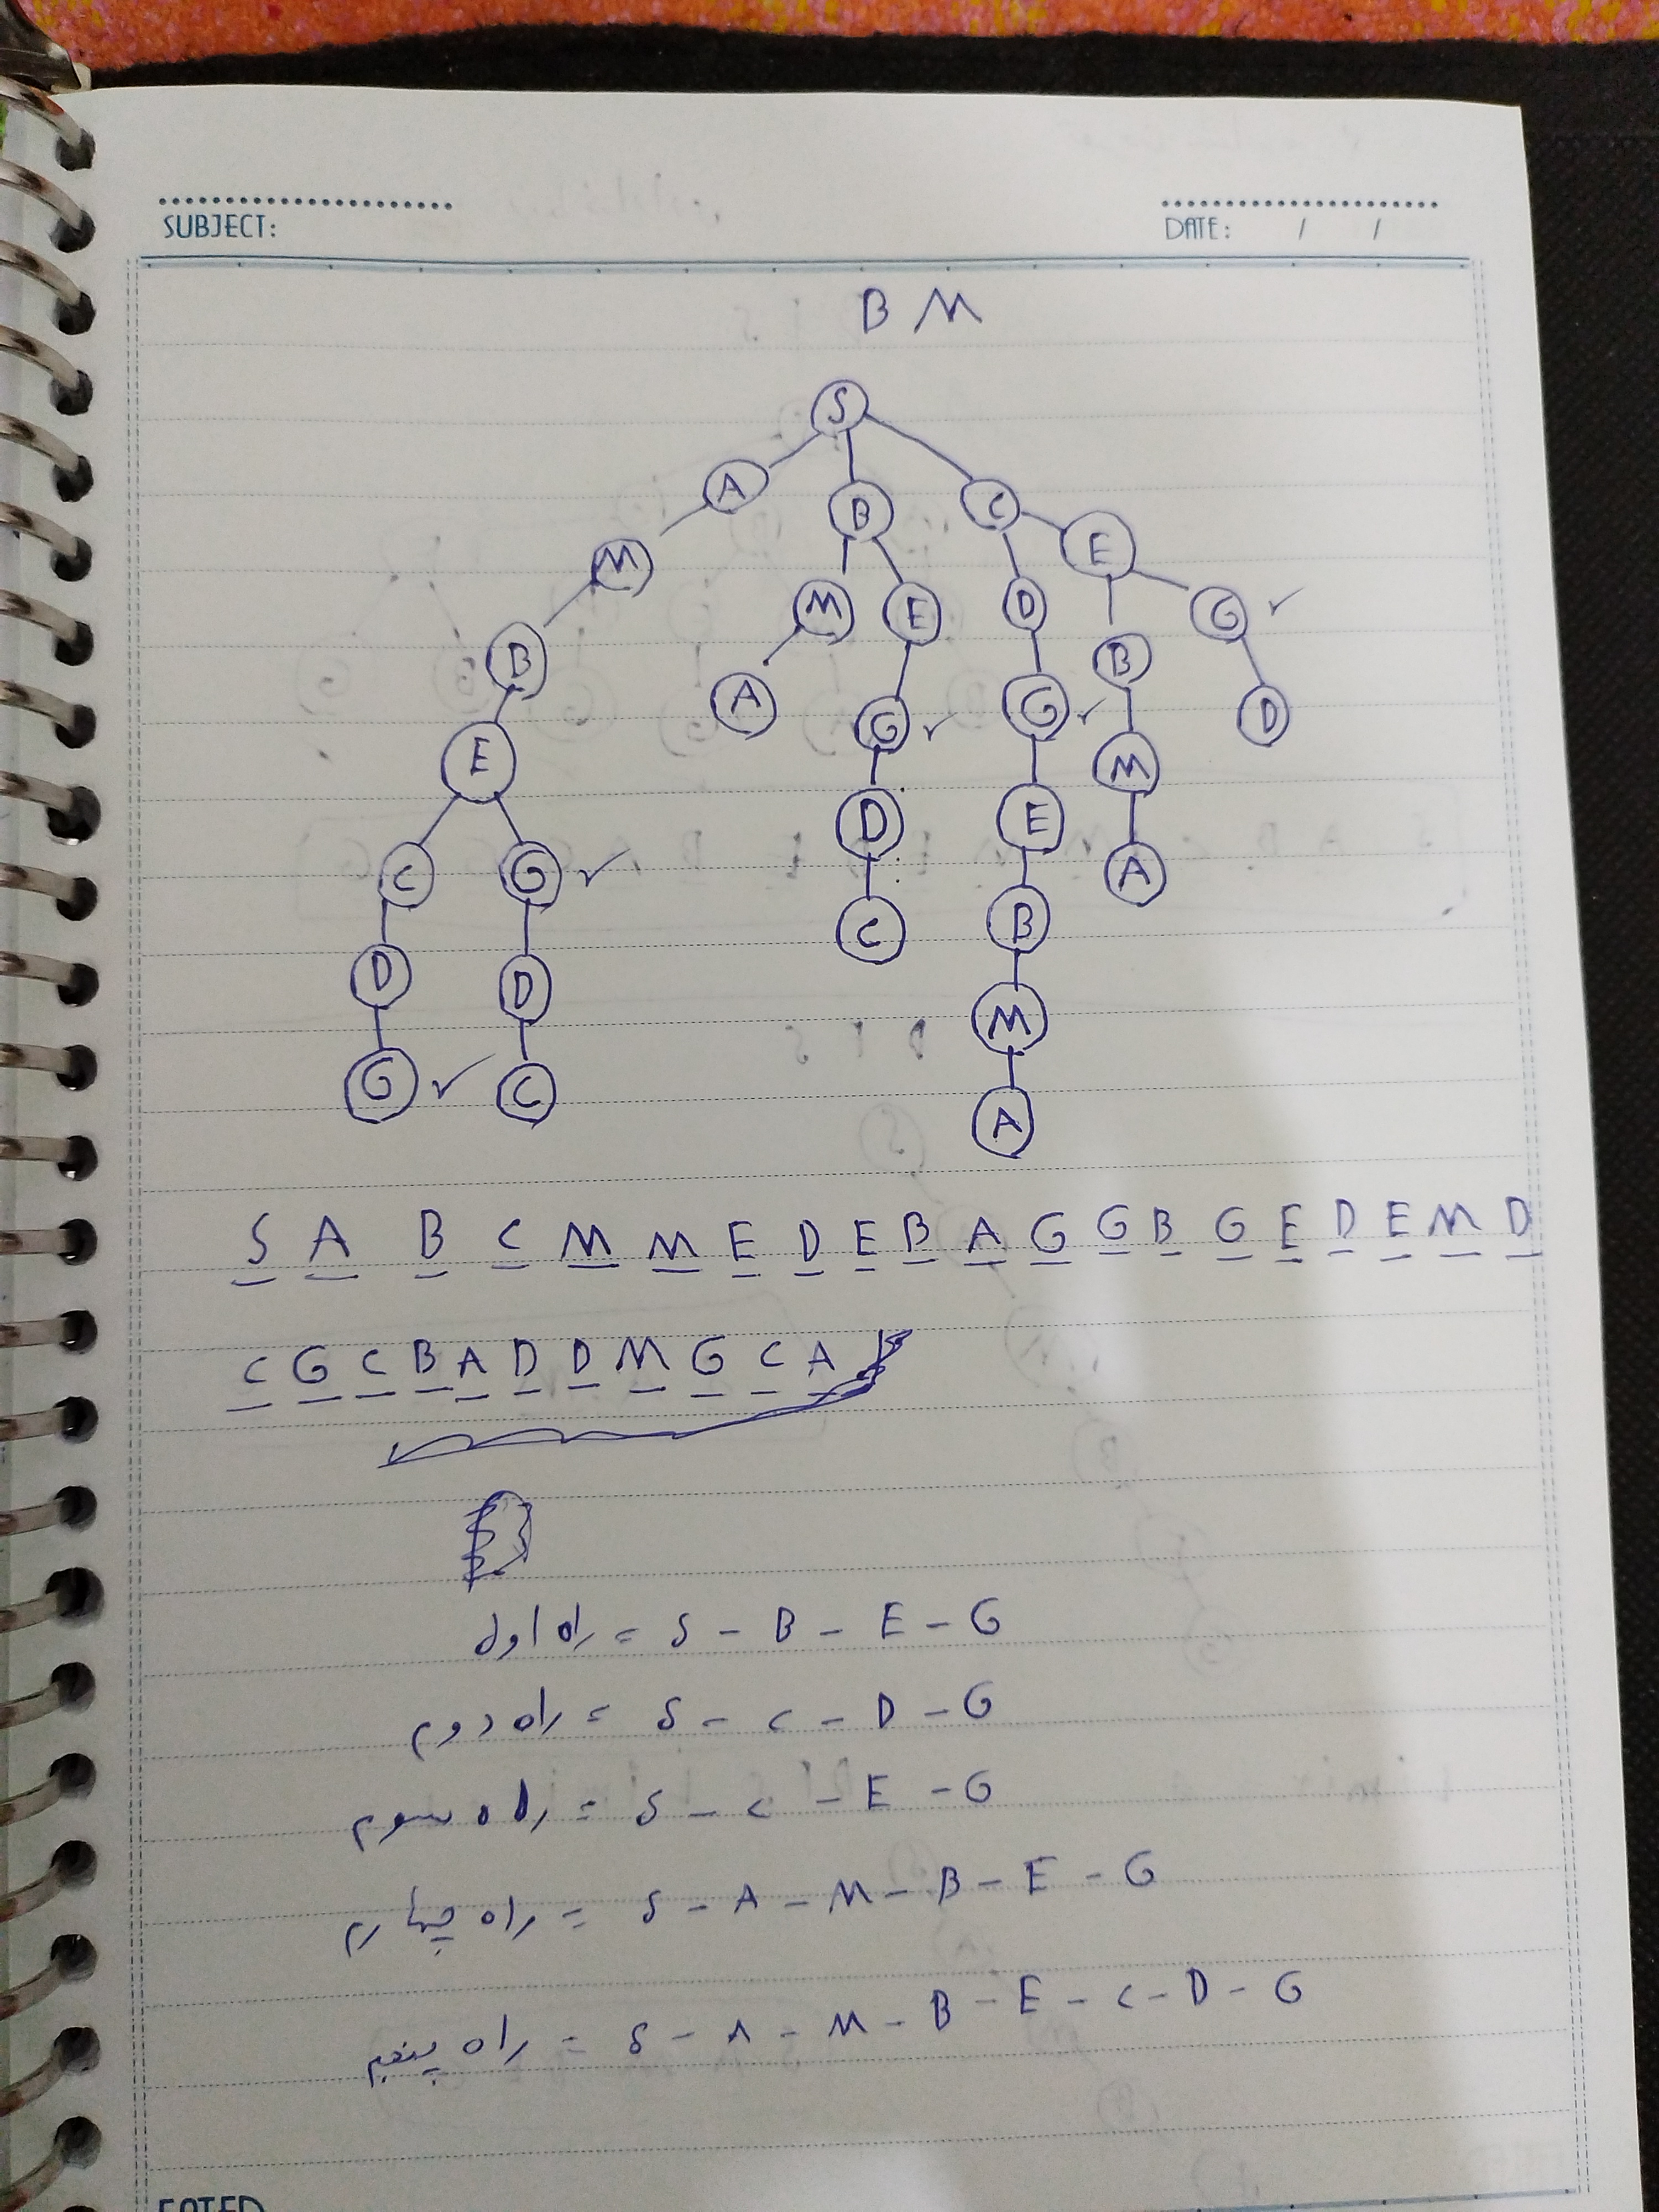 SUBJECT:
DATE: / /
B M
S
A B C
M M E D E
B A G G B G
E D E M D
C G C B A
D D M
G C A
S A B C M M E D E B A G G B G E D E M D
C G C B A D D M G C A
راه اول = S - B - E - G
راه دوم = S - C - D - G
راه سوم = S - C - E - G
راه چهارم = S - A - M - B - E - G
راه پنجم = S - A - M - B - E - C - D - G